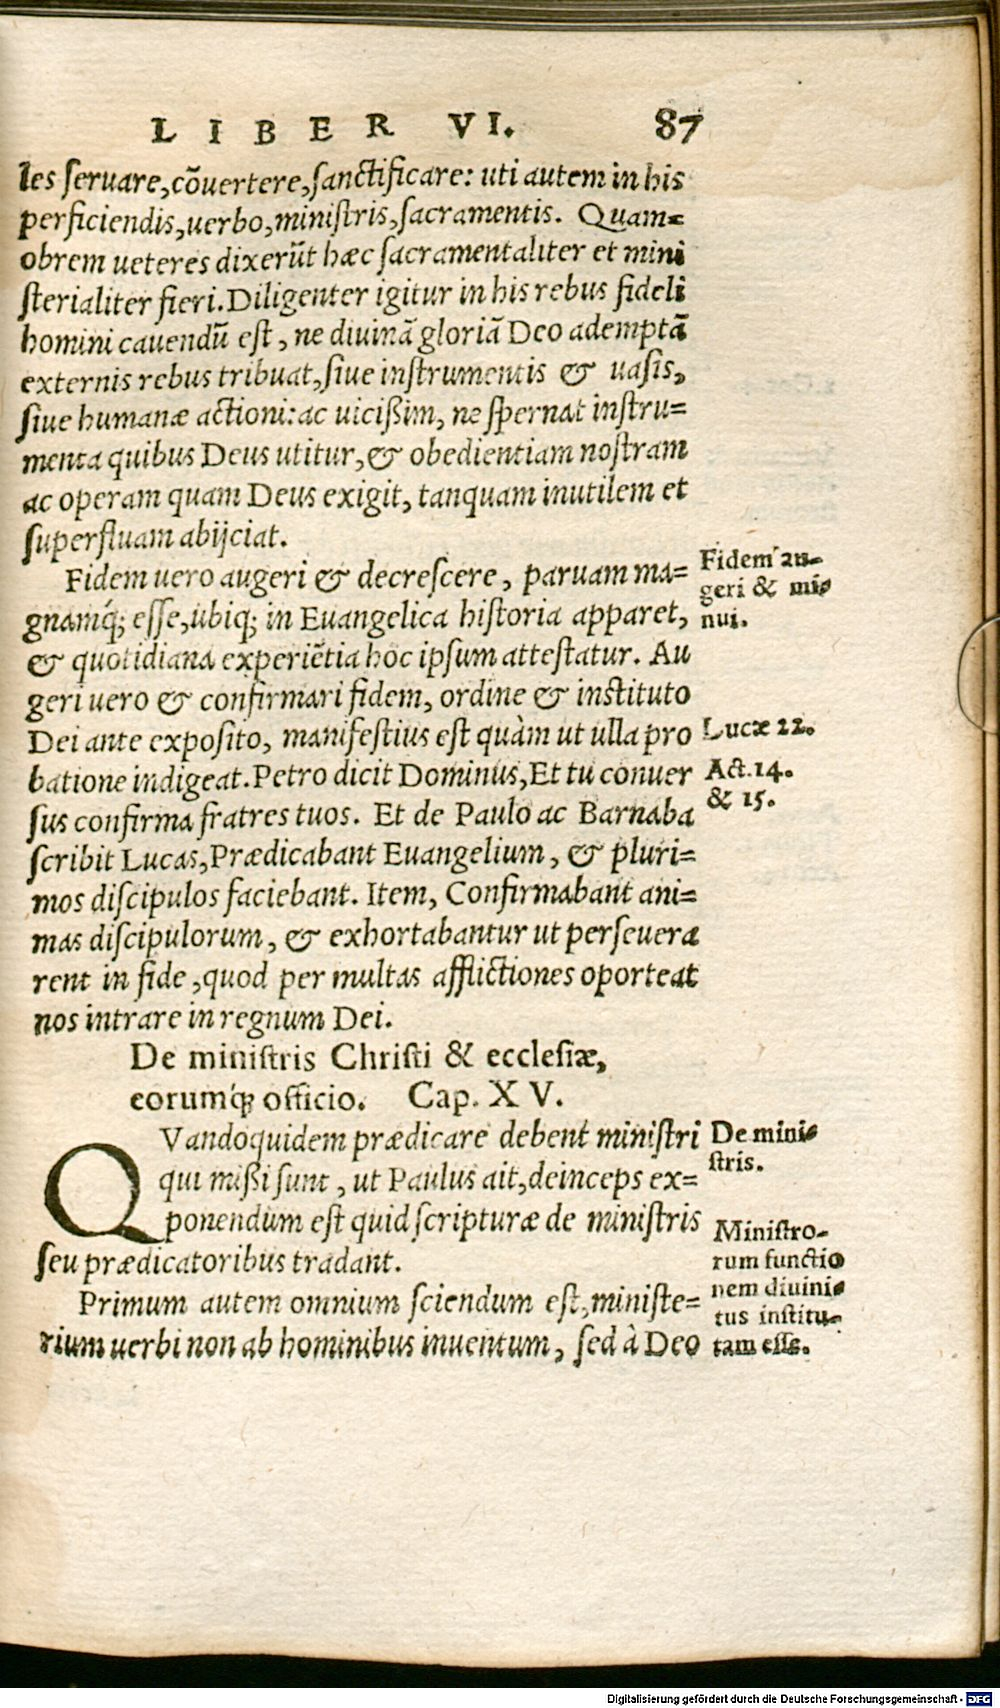 LIBER VI. 87
les seruare, cõuertere, sanctificare: uti autem in his
perficiendis, uerbo, ministris, sacramentis. Quam=
obrem ueteres dixerũt hæc sacramentaliter et mini
sterialiter fieri. Diligenter igitur in his rebus fideli
homini cauendũ est, ne diuinã gloriã Deo ademptã
externis rebus tribuat, siue instrumentis & uasis,
siue humanæ actioni: ac uicißim, ne spernat instru=
menta quibus Deus utitur, & obedientiam nostram
ac operam quam Deus exigit, tanquam inutilem et
superfluam abijciat.
Fidem uero augeri & decrescere, paruam ma=
gnamq́; esse, ubiq; in Euangelica historia apparet,
& quotidiana experiẽtia hoc ipsum attestatur. Au
geri uero & confirmari fidem, ordine & instituto
Dei ante exposito, manifestius est quàm ut ulla pro
batione indigeat. Petro dicit Dominus, Et tu conuer
sus confirma fratres tuos. Et de Paulo ac Barnaba
scribit Lucas, Prædicabant Euangelium, & pluri=
mos discipulos faciebant. Item, Confirmabant ani=
mas discipulorum, & exhortabantur ut perseuera
rent in fide, quod per multas afflictiones oporteat
nos intrare in regnum Dei.
Fidem au=
geri & mi=
nui.
Lucæ 22.
Act. 14.
& 15.
De ministris Christi & ecclesiæ,
eorumq́; officio. Cap. XV.
QVandoquidem prædicare debent ministri
qui mißi sunt, ut Paulus ait, deinceps ex=
ponendum est quid scripturæ de ministris
seu prædicatoribus tradant.
Primum autem omnium sciendum est, ministe=
rium uerbi non ab hominibus inuentum, sed à Deo
De mini=
stris.
Ministro=
rum functio
nem diuini=
tus institu=
tam esse.
Digitalisierung gefördert durch die Deutsche Forschungsgemeinschaft - DFG